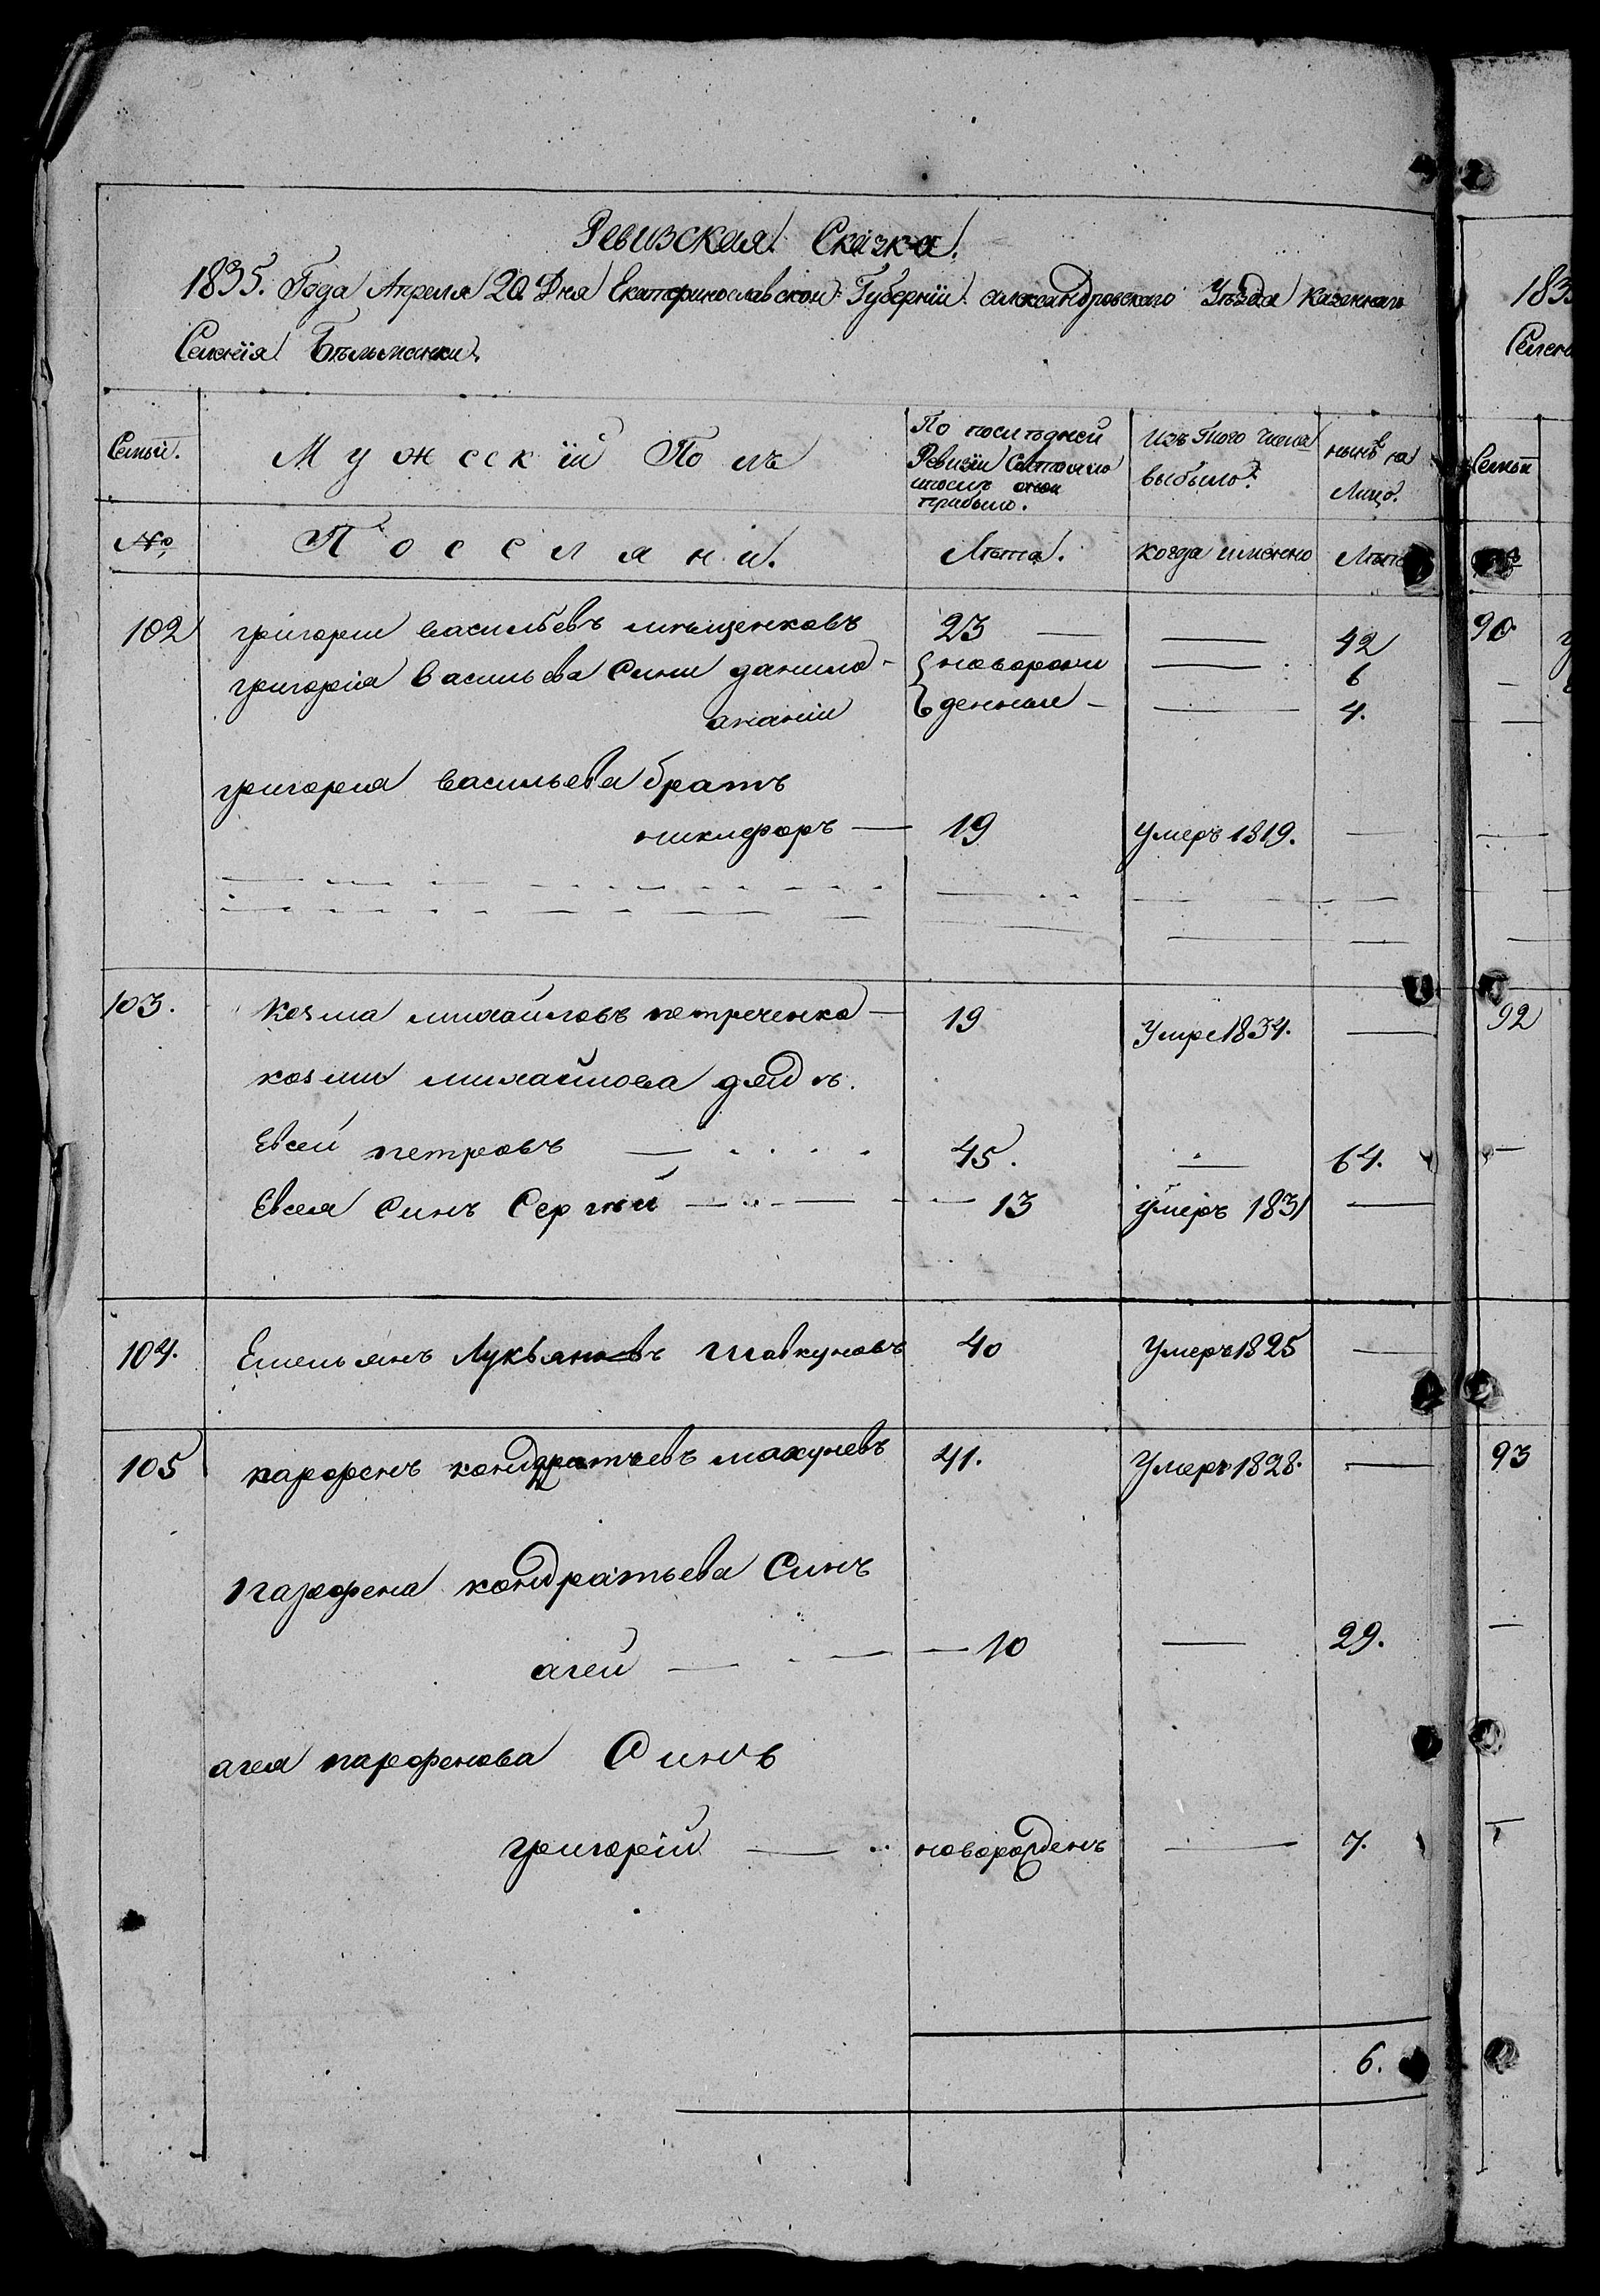 Ревизская Сказка.
1835. Года Апреля 20. Дня Екатеринославской Губернїи александровского Уѣзда Казенного
Селенїя Бѣльманки.
Семьи.
Мужескїй Полъ
По последней
Ревизїи Состояло
и после оной
прибыло.
Изъ того числа
выбыло.
нынѣ на
Лицо.
№
Поселяни.
Лѣта.
когда именно
Лѣта
102 григории васильевъ мѣщенковъ 23 — — 42
григорїя Васильева Сини данило - новорож — 6
ананїи денные — — 4.
григорея васильева братъ
никифоръ — 19 умеръ 1819. —
103. Козма михайловъ петреченко — 19 Умре 1834. —
козми михайлова дядъ.
Евсей петровъ — 45. — 64.
Евсея Синъ Сергѣй — 13 умеръ 1831 —
104. Емельянъ Лукьяновъ Шавкуновъ 40 Умеръ 1825 —
105 парфенъ кондратьевъ махуневъ 41. Умеръ 1828. —
парфена кондратьева Синъ
агей — — 10 — 29.
агея парфенова Синъ
григорїй — новорожденъ — 7.
6.
183
Селен
Семьи
90
92
93